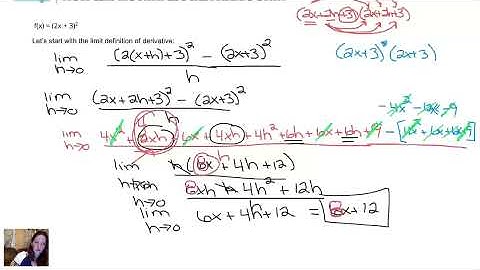 f(x) = (2x + 3)²
Let's start with the limit definition of derivative:
(2x+2h+3)(2x+2h+3)
(2x+3)²(2x+3)
lim h→0 (2(x+h)+3)² − (2x+3)² / h
lim h→0 (2x+2h+3)² − (2x+3)²
−4x² −12x −9
lim h→0 4x² + 4xh + 6x + 4xh + 4h² + 6h + 6x + 6h + 9 − [4x²+6x+6x+9]
lim h→0 h(8x + 4h + 12)
8xh + 4h² + 12h
lim h→0 6x + 4h + 12 = 8x + 12